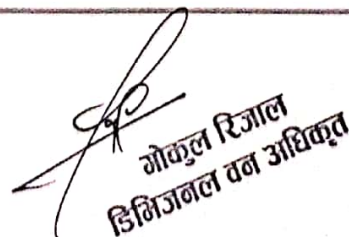 गोकुल रिजाल
डिभिजनल वन अधिकृत